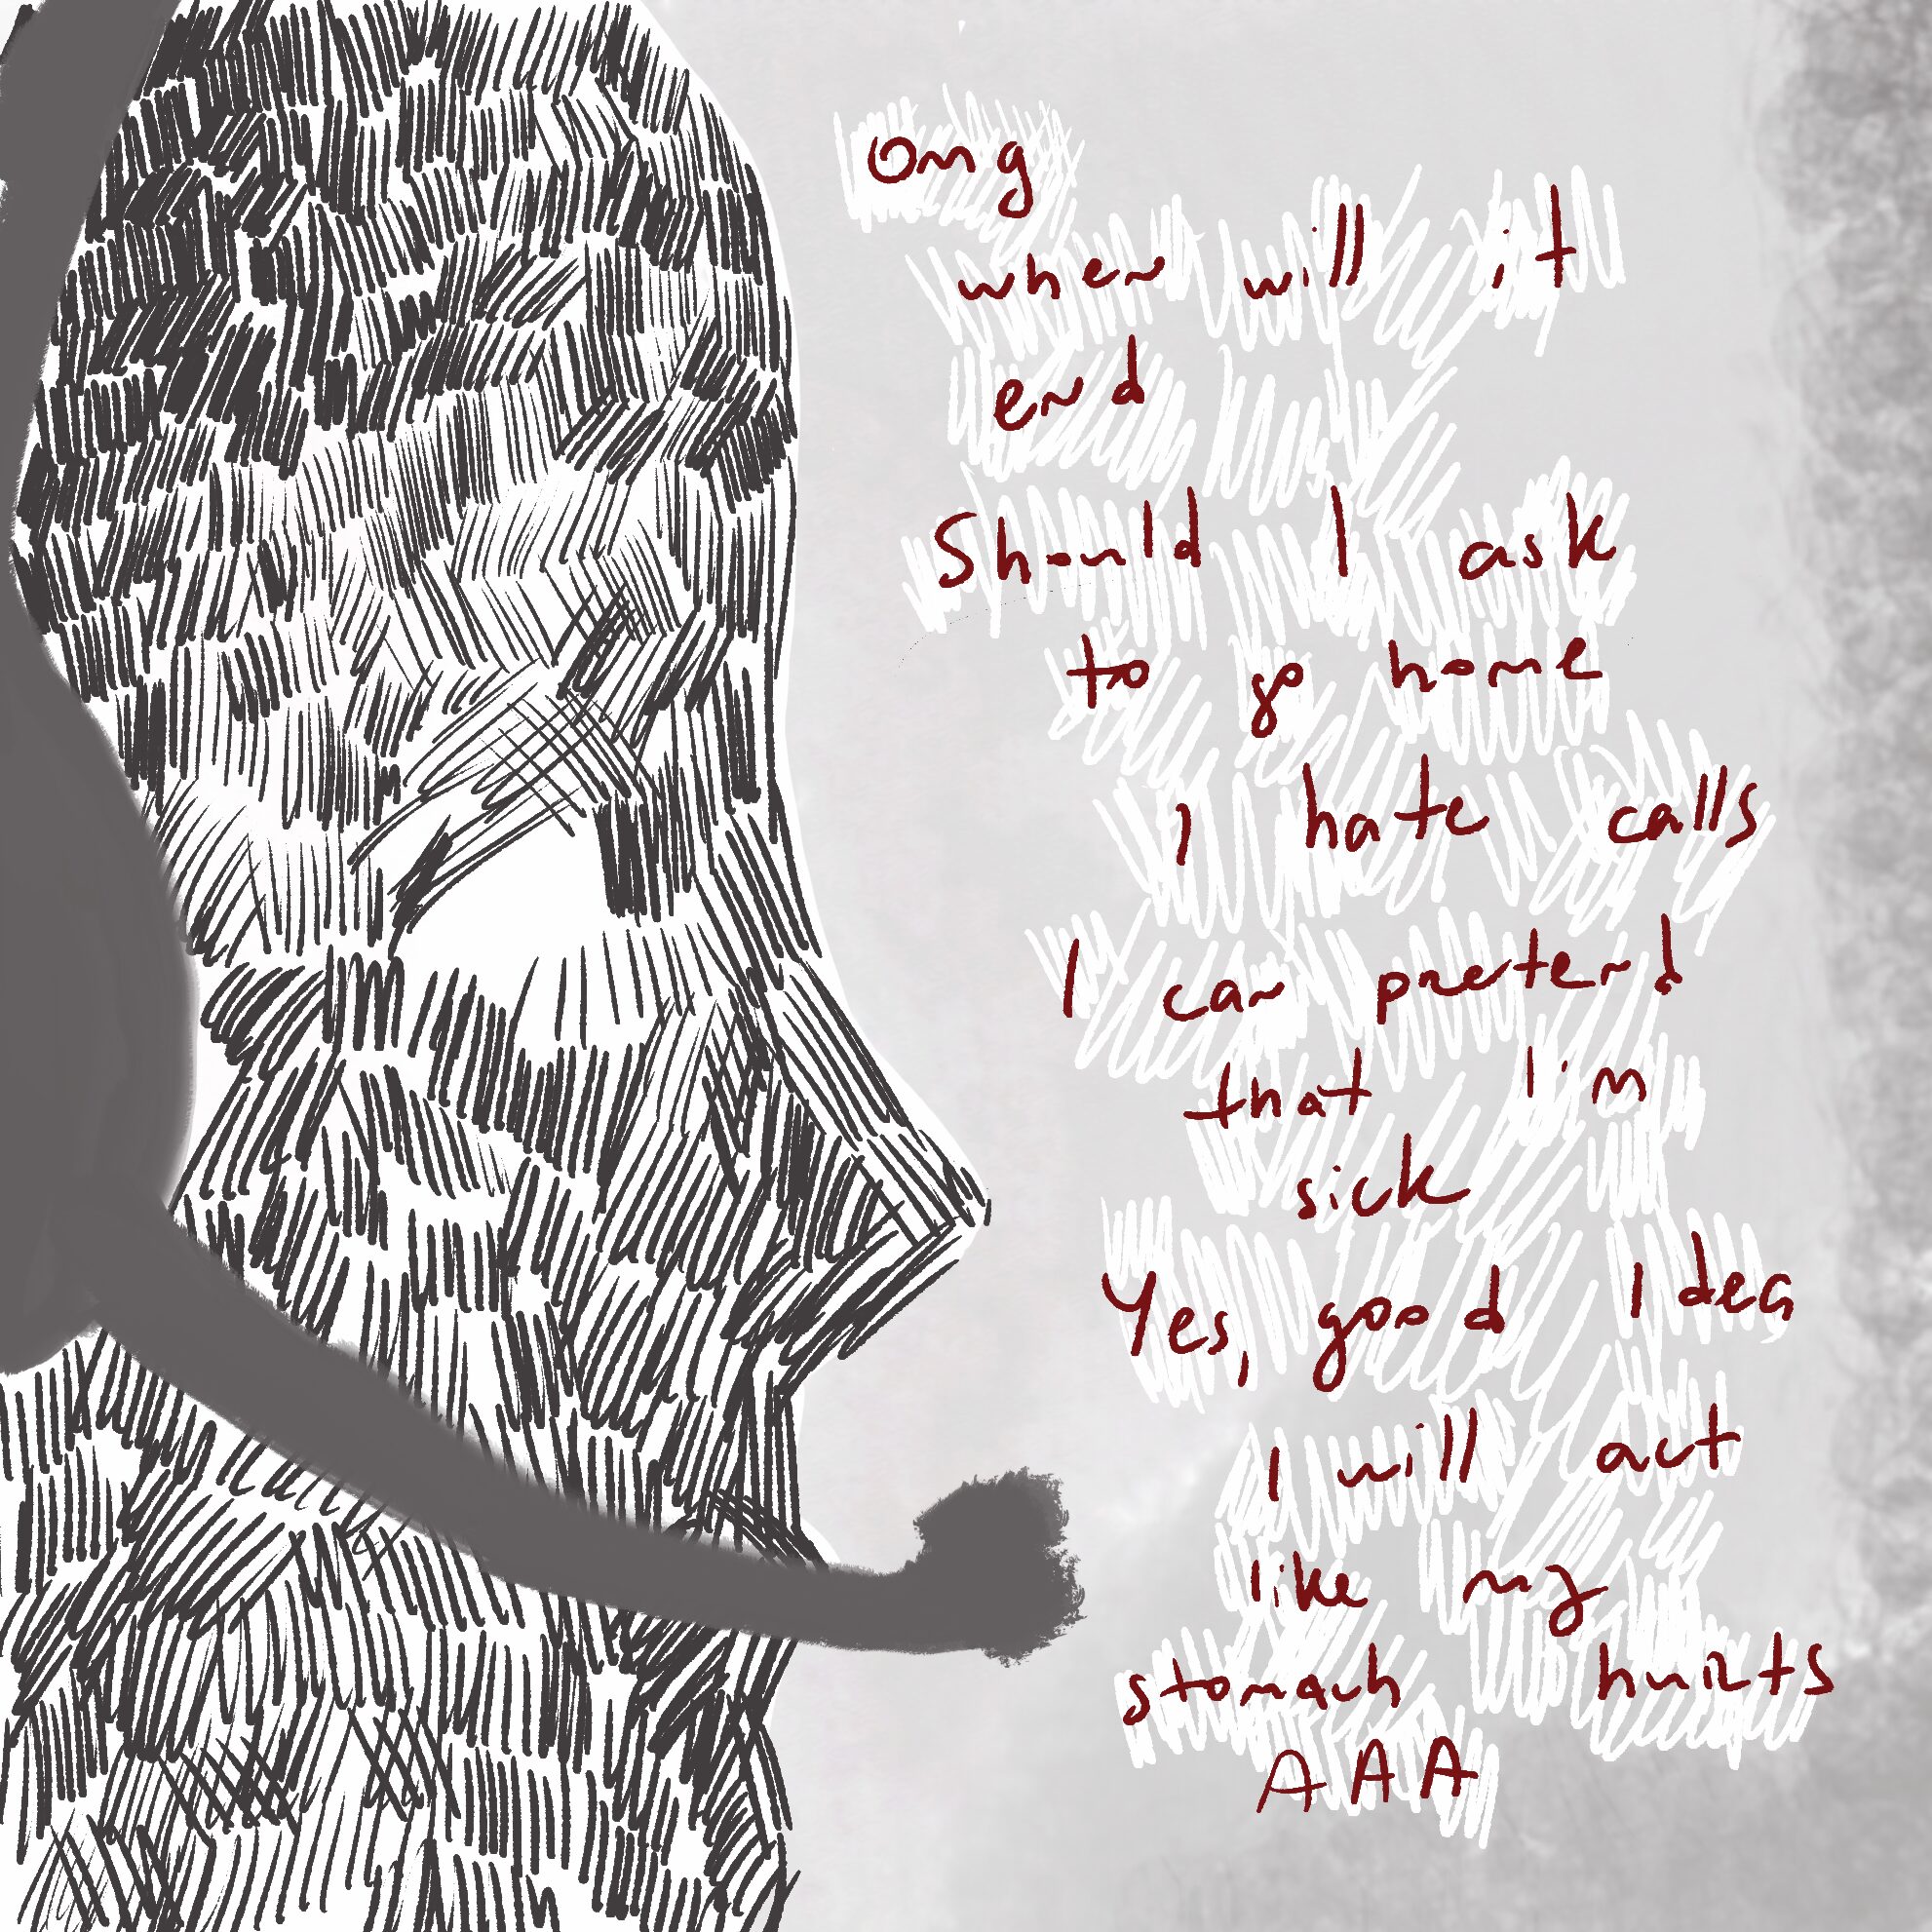 Omg
when will it
end
Should I ask
to go home
I hate calls
I can pretend
that I'm
sick
Yes, good Idea
I will act
like my
stomach hurts
AAA